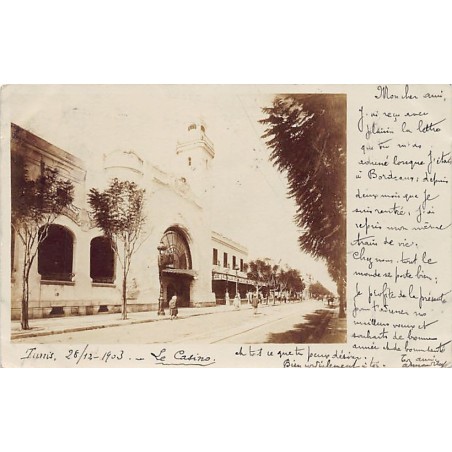 Mon cher ami,
J'ai reçu avec
plaisir la lettre
que tu m'as
adressé lorsque j'étais
à Bordeaux; depuis
deux mois que je
suis rentré, j'ai
repris mon même
train de vie.
Chez moi tout le
monde se porte bien;
Je profite de la présente
pour t'adresser nos
meilleurs vœux et
souhaits de bonne
année et de bonne santé
ton ami
Tunis, 28/12-1903 - Le Casino.
et à toi ce que tu peux désirer.
Bien cordialement à toi.